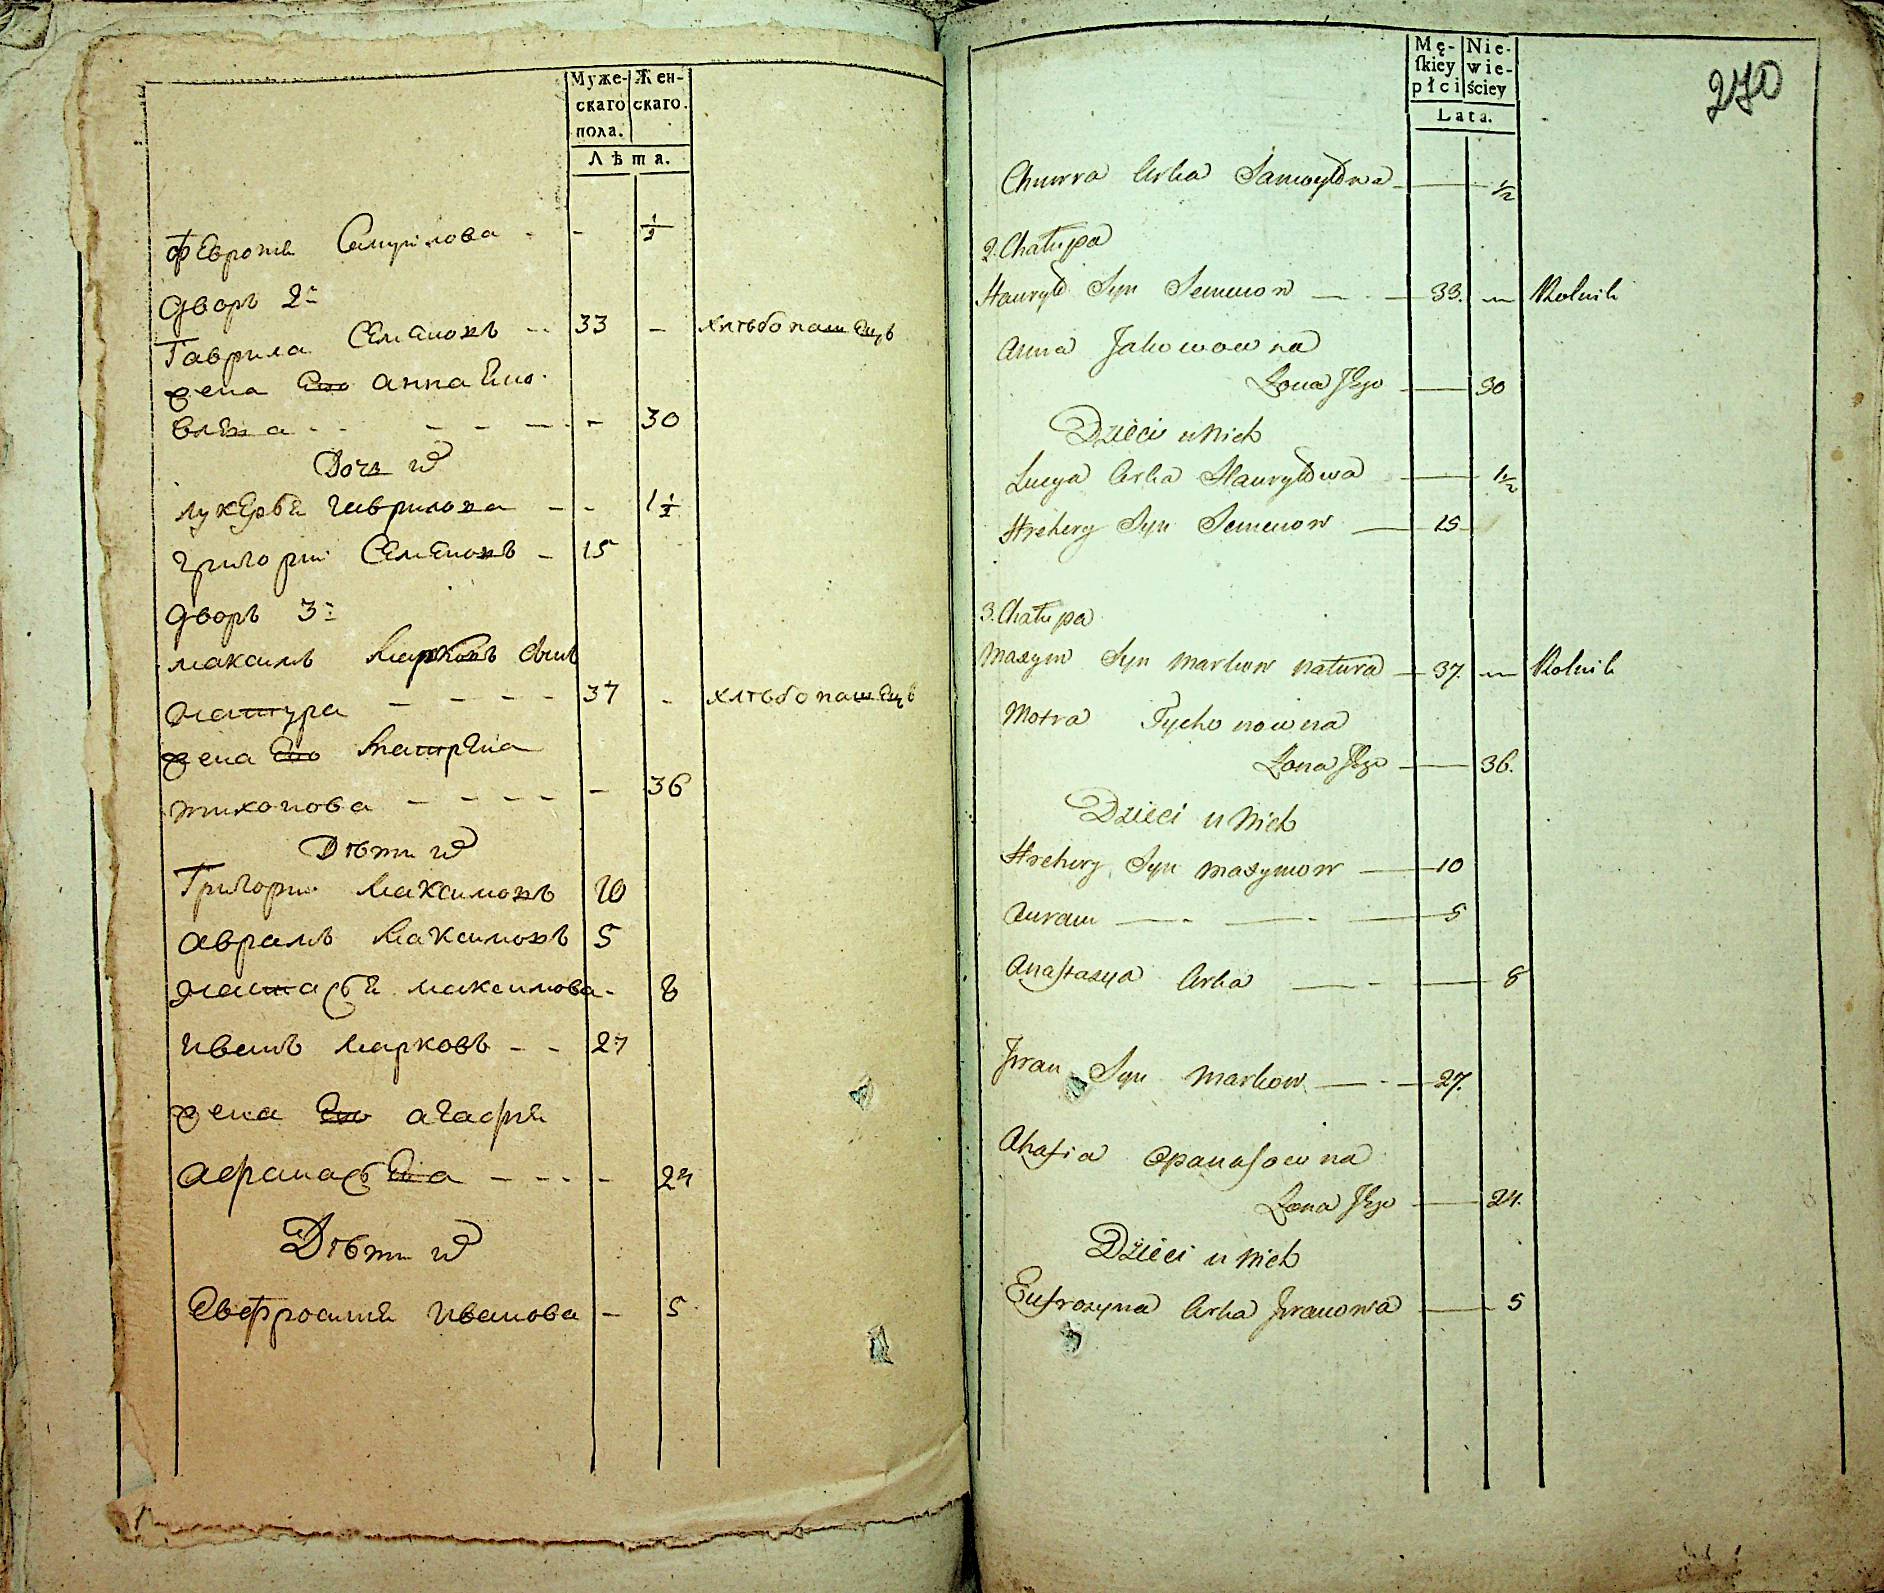 Муже- Жен-
скаго скаго.
пола.
Лѣта.
Февронїя Самуилова - - ½
Дворъ 2й
Гаврила Семеновъ - 33 - хлѣбопашецъ
жена Его Анна Яко-
влева - - - - - - 30
Дочь их
Лукерья Гаврилова - - 1½
Григорий Семеновъ - 15
Дворъ 3й
Максимъ Марковъ сынъ
Натура - - - - 37 - хлѣбопашецъ
жена Его Матрена
Тихонова - - - - - 36
Дѣти их
Григорий Максимовъ 10
Аврамъ Максимовъ 5
Настасья Максимова - 8
Иванъ Марковъ - - 27
жена Его Агафия
Афанасьева - - - - 24
Дѣти их
Евфросиния Иванова - 5
270
Mę- Nie-
skiey wie-
płci ściey
Lata.
Chwrra Crka Samoyłowa ½
2. Chałupa
Hauryło Syn Semenow 33. Rolnik
Anna Jakowowna
Żona Jego 30
Dzieci u Nich
Lucya Crka Hauryłowa 1½
Hrehory Syn Semenow 15
3. Chałupa
Maxym Syn Markow Natura 37. Rolnik
Motra Tychonowna
Żona Jego 36.
Dzieci u Nich
Hrehory Syn Maxymow 10
Auram 5
Anastazya Crka 8
Iwan Syn Markow 27.
Ahafia Opanasowna
Żona Jego 24.
Dzieci u Nich
Eufrozyna Crka Iwanowa 5